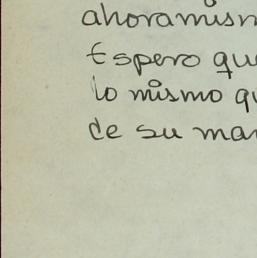 ahoramism
Espero que
lo mismo qu
de su mar